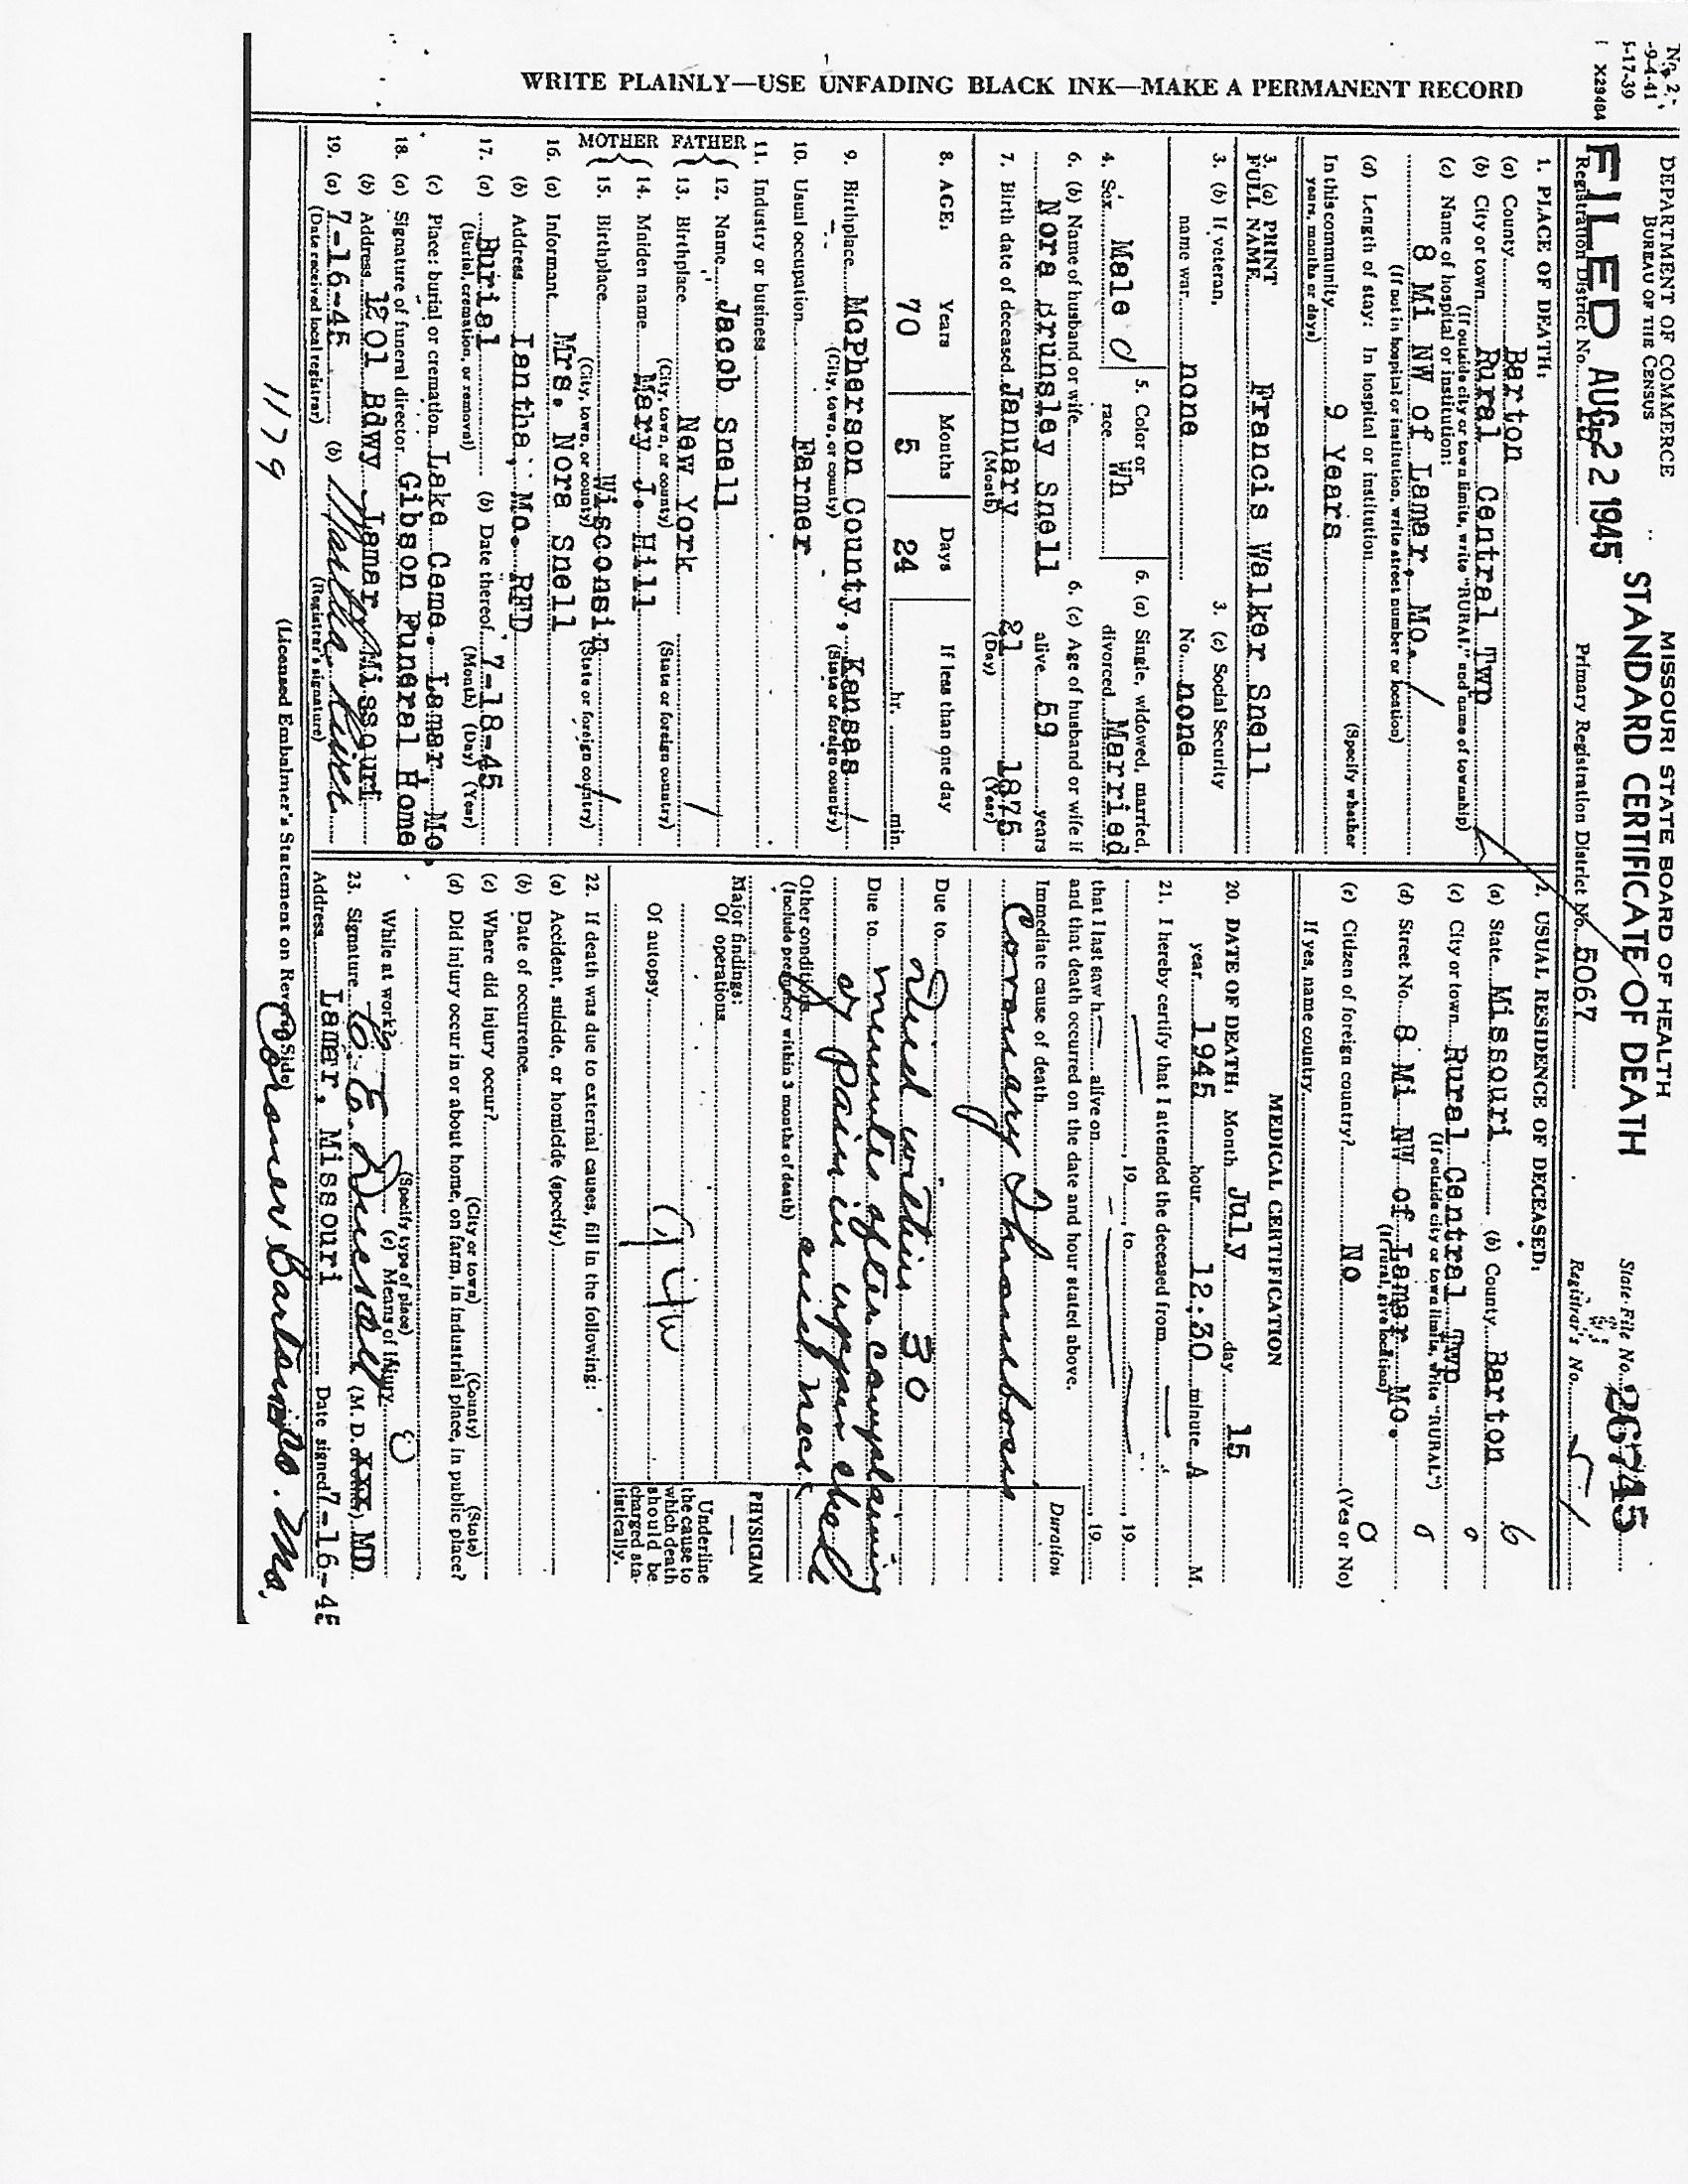 No. 2-
-9-4-41
5-17-39
X29484
DEPARTMENT OF COMMERCE
BUREAU OF THE CENSUS
MISSOURI STATE BOARD OF HEALTH
STANDARD CERTIFICATE OF DEATH
State File No. 26745
FILED AUG 22 1945
Registration District No.
Primary Registration District No. 5067
Registrar's No. 51
WRITE PLAINLY—USE UNFADING BLACK INK—MAKE A PERMANENT RECORD
1. PLACE OF DEATH:
(a) County Barton
(b) City or town Rural Central Twp
(If outside city or town limits, write "RURAL" and name of township)
(c) Name of hospital or institution:
8 Mi NW of Lamar, Mo.
(If not in hospital or institution, write street number or location)
(d) Length of stay: In hospital or institution
(Specify whether
In this community 9 Years
years, months or days)
3. (a) PRINT
FULL NAME Francis Walker Snell
3. (b) If veteran,
name war none
3. (c) Social Security
No. none
4. Sex Male
5. Color or
race Wh
6. (a) Single, widowed, married,
divorced Married
6. (b) Name of husband or wife
Nora Brunsley Snell
6. (c) Age of husband or wife if
alive 59 years
7. Birth date of deceased January 21 1875
(Month) (Day) (Year)
8. AGE: Years Months Days If less than one day
70 5 24 hr. min.
9. Birthplace McPherson County, Kansas
(City, town, or county) (State or foreign country)
10. Usual occupation Farmer
11. Industry or business
FATHER
12. Name Jacob Snell
13. Birthplace New York
(City, town, or county) (State or foreign country)
MOTHER
14. Maiden name Mary J. Hill
15. Birthplace Wisconsin
(City, town, or county) (State or foreign country)
16. (a) Informant Mrs. Nora Snell
(b) Address Iantha, Mo. RFD
17. (a) Burial (b) Date thereof 7-18-45
(Burial, cremation, or removal) (Month) (Day) (Year)
(c) Place: burial or cremation Lake Ceme. Lamar, Mo.
18. (a) Signature of funeral director Gibson Funeral Home
(b) Address 1201 Bdwy Lamar, Missouri
19. (a) 7-16-45 (b)
(Date received local registrar) (Registrar's signature)
2. USUAL RESIDENCE OF DECEASED:
(a) State Missouri (b) County Barton 6
(c) City or town Rural Central Twp 0
(If outside city or town limits, write "RURAL")
(d) Street No. 8 Mi NW of Lamar Mo. 0
(If rural, give location)
(e) Citizen of foreign country? No (Yes or No) 0
If yes, name country
MEDICAL CERTIFICATION
20. DATE OF DEATH: Month July day 15
year 1945 hour 12:30 minute A M.
21. I hereby certify that I attended the deceased from
, 19 , to , 19
that I last saw h alive on , 19
and that death occurred on the date and hour stated above.
Duration
Immediate cause of death
Coronary Thrombosis
Due to Died within 30
Due to minutes after complaining
of Pain in upper chest
Other conditions and neck
(Include pregnancy within 3 months of death)
PHYSICIAN
Major findings:
Of operations
Of autopsy
Underline
the cause to
which death
should be
charged sta-
tistically.
22. If death was due to external causes, fill in the following:
(a) Accident, suicide, or homicide (specify)
(b) Date of occurrence
(c) Where did injury occur?
(City or town) (County) (State)
(d) Did injury occur in or about home, on farm, in industrial place, in public place?
(Specify type of place)
While at work? (e) Means of injury
23. Signature (M. D. XXX) MD
Address Lamar, Missouri Date signed 7-16-45
(Licensed Embalmer's Statement on Reverse Side)
1179
Coroner Barton Co. Mo.